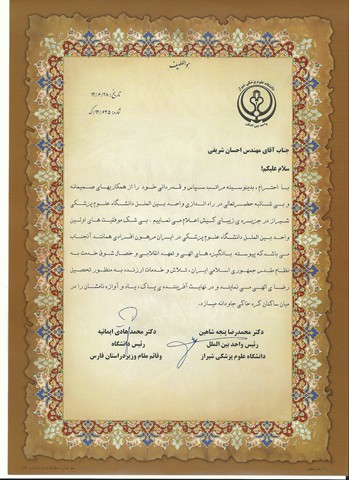 هواللطیف
دانشگاه علوم پزشکی شیراز
واحد بین الملل
تاریخ: ۹۲/۶/۲۸
شماره: ۹۲/۶۳۵/ک
جناب آقای مهندس احسان شریفی
سلام علیکم!
با احترام، بدینوسیله مراتب سپاس و قدردانی خود را از همکاریهای صمیمانه و
بی شائبه حضرتعالی در راه اندازی واحد بین الملل دانشگاه علوم پزشکی
شیراز در جزیره‌ی زیبای کیش اعلام می نماییم. بی شک موفقیت های اولین
واحد بین الملل دانشگاه علوم پزشکی در ایران مرهون افرادی همانند آنجناب
می باشد که پیوسته با انگیزه های الهی و تعهد انقلابی و حصار شوق خدمت به
نظام مقدس جمهوری اسلامی ایران، تلاش و خدمات ارزنده به منظور تحصیل
رضای الهی می نمایند و در نهایت آفریننده ی پاک، یاد و آوازه نامشان را در
میان ساکنان کره خاکی جاودانه میسازد.
دکتر محمدرضا پنجه شاهین
رئیس واحد بین الملل
دانشگاه علوم پزشکی شیراز
دکتر محمدهادی ایمانیه
رئیس دانشگاه
وقائم مقام وزیر در استان فارس